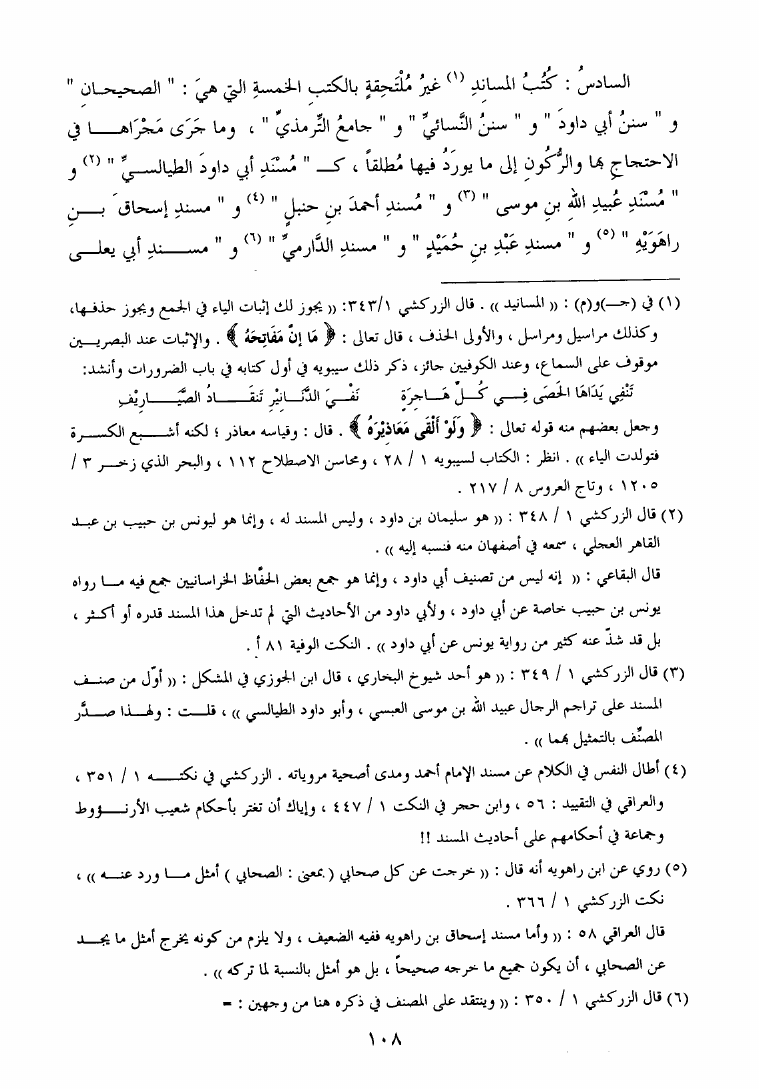 السادسُ : كُتُبُ المساندِ (١) غيرُ مُلْتَحِقةٍ بالكتبِ الخمسةِ التي هيَ : " الصحيحــانِ "
و " سننُ أبي داودَ " و " سننُ النَّسائيِّ " و " جامعُ التِّرمذيِّ " ، وما جَرَى مَجْرَاهــا في
الاحتجاجِ بها والرُّكُونِ إلى ما يورَدُ فيها مُطلقاً ، كــ " مُسْنَدِ أبي داودَ الطيالسـيِّ " (٢) و
" مُسْنَدِ عُبيدِ اللهِ بنِ موسى " (٣) و " مُسندِ أحمدَ بنِ حنبلٍ " (٤) و " مسندِ إسحاقَ بــنِ
راهَوَيْهِ " (٥) و " مسندِ عَبْدِ بنِ حُمَيْدٍ " و " مسندِ الدَّارميِّ " (٦) و " مســندِ أبي يعلــى
(١) في (جـ)و(م) : (( المسانيد )) . قال الزركشي ٣٤٣/١: (( يجوز لك إثبات الياء في الجمع ويجوز حذفها،
وكذلك مراسيل ومراسل ، والأولى الحذف ، قال تعالى : ﴿ مَا إِنَّ مَفَاتِحَهُ ﴾ . والإثبات عند البصريــين
موقوف على السماع، وعند الكوفيين جائز، ذكر ذلك سيبويه في أول كتابه في باب الضرورات وأنشد:
تَنْفِي يَدَاهَا الحَصَى فِــي كُــلِّ هَــاجِرَةٍ نَفْــيَ الدَّنَــانِيْرِ تَنقَــادُ الصَّيَــارِيْفِ
وجعل بعضهم منه قوله تعالى : ﴿ وَلَوْ أَلْقَى مَعَاذِيْرَهُ ﴾ . قال : وقياسه معاذر ؛ لكنه أشــبع الكســرة
فتولدت الياء )) . انظر : الكتاب لسيبويه ١ / ٢٨ ، ومحاسن الاصطلاح ١١٢ ، والبحر الذي زخــر ٣ /
١٢٠٥ ، وتاج العروس ٨ / ٢١٧ .
(٢) قال الزركشي ١ / ٣٤٨ : (( هو سليمان بن داود ، وليس المسند له ، وإنما هو ليونس بن حبيب بن عبــد
القاهر العجلي ، سمعه في أصفهان منه فنسبه إليه )) .
قال البقاعي : (( إنه ليس من تصنيف أبي داود ، وإنما هو جمع بعض الحفّاظ الخراسانيين جمع فيه مــا رواه
يونس بن حبيب خاصة عن أبي داود ، ولأبي داود من الأحاديث التي لم تدخل هذا المسند قدره أو أكــثر ،
بل قد شذّ عنه كثير من رواية يونس عن أبي داود )) . النكت الوفية ٨١ أ .
(٣) قال الزركشي ١ / ٣٤٩ : (( هو أحد شيوخ البخاري ، قال ابن الجوزي في المشكل : (( أوّل من صنــف
المسند على تراجم الرجال عبيد الله بن موسى العبسي ، وأبو داود الطيالسي )) ، قلــت : ولهــذا صــدَّر
المصنِّف بالتمثيل بهما )) .
(٤) أطال النفس في الكلام عن مسند الإمام أحمد ومدى أصحية مروياته . الزركشي في نكتــه ١ / ٣٥١ ،
والعراقي في التقييد : ٥٦ ، وابن حجر في النكت ١ / ٤٤٧ ، وإياك أن تغتر بأحكام شعيب الأرنــؤوط
وجماعة في أحكامهم على أحاديث المسند !!
(٥) روي عن ابن راهويه أنه قال : (( خرجت عن كل صحابي ( بمعنى : الصحابي ) أمثل مــا ورد عنــه )) ،
نكت الزركشي ١ / ٣٦٦ .
قال العراقي ٥٨ : (( وأما مسند إسحاق بن راهويه ففيه الضعيف ، ولا يلزم من كونه يخرج أمثل ما يجــد
عن الصحابي ، أن يكون جميع ما خرجه صحيحاً ، بل هو أمثل بالنسبة لما تركه )) .
(٦) قال الزركشي ١ / ٣٥٠ : (( وينتقد على المصنف في ذكره هنا من وجهين : =
١٠٨